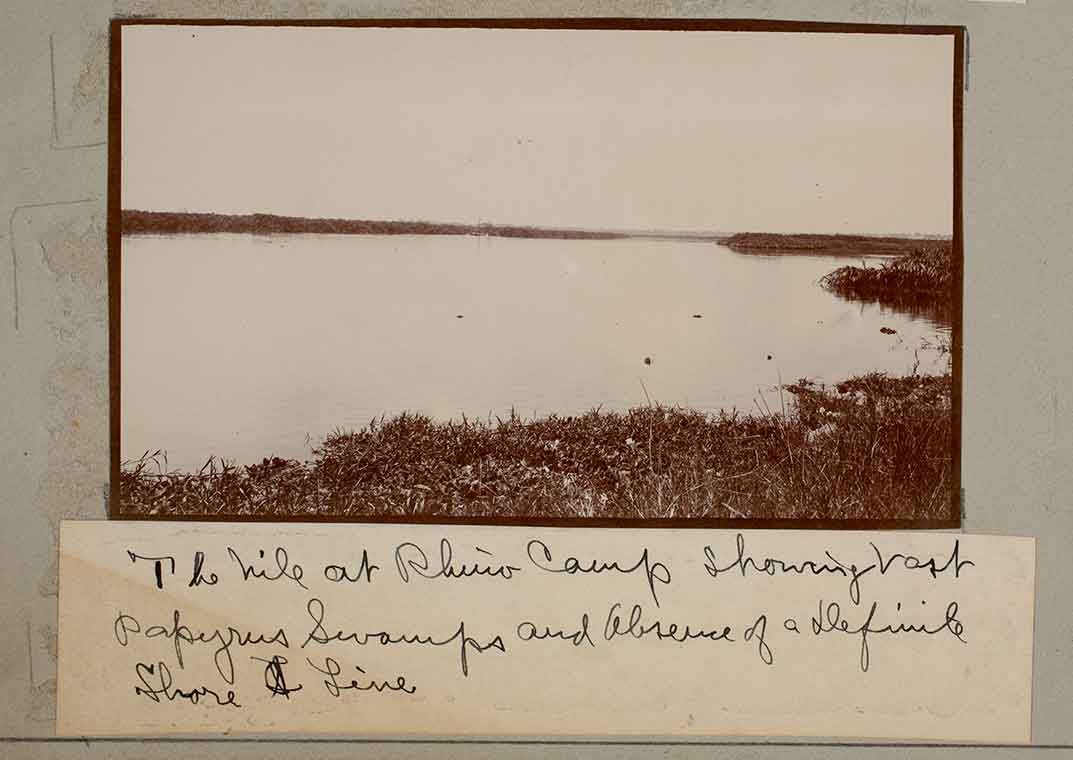 The Nile at Rhino Camp Showing Vast
Papyrus Swamps and Absence of a definite
Shore Line